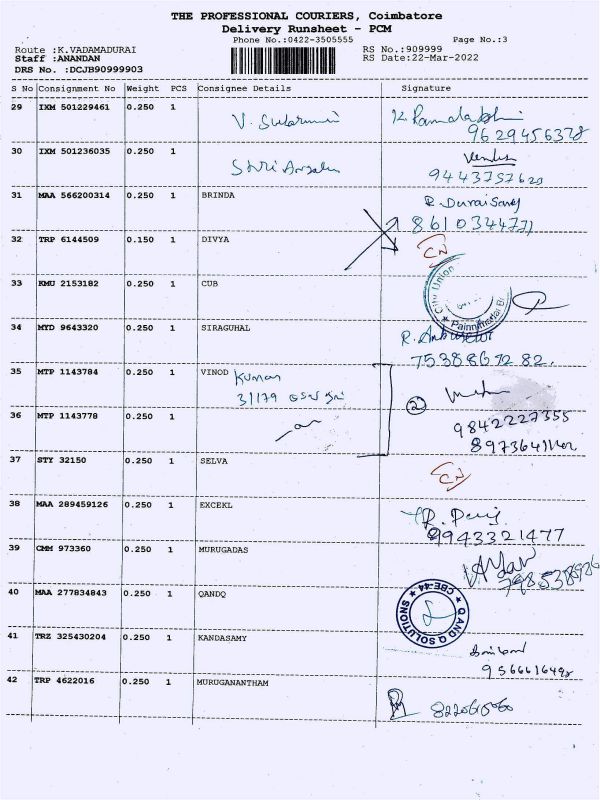 THE PROFESSIONAL COURIERS, Coimbatore
Delivery Runsheet - PCM
Phone No.:0422-3505555
Page No.:3
Route :K.VADAMADURAI
RS No.:909999
Staff :ANANDAN
RS Date:22-Mar-2022
DRS No. :DCJB90999903
S No Consignment No Weight PCS Consignee Details Signature
29 IXM 501229461 0.250 1
9629456378
30 IXM 501236035 0.250 1 Shri
31 MAA 566200314 0.250 1 BRINDA R. Duraisamy
32 TRP 6144509 0.150 1 DIVYA CN
33 KMU 2153182 0.250 1 CUB
City Union
34 MYD 9643320 0.250 1 SIRAGUHAL
35 MTP 1143784 0.250 1 VINOD Kumar
31/179
36 MTP 1143778 0.250 1
2
9842227355
37 STY 32150 0.250 1 SELVA CN
38 MAA 289459126 0.250 1 EXCEKL
9943321477
39 CMM 973360 0.250 1 MURUGADAS
40 MAA 277834843 0.250 1 QANDQ
Q AND Q SOLUTIONS CBE-44
41 TRZ 325430204 0.250 1 KANDASAMY
42 TRP 4622016 0.250 1 MURUGANANTHAM